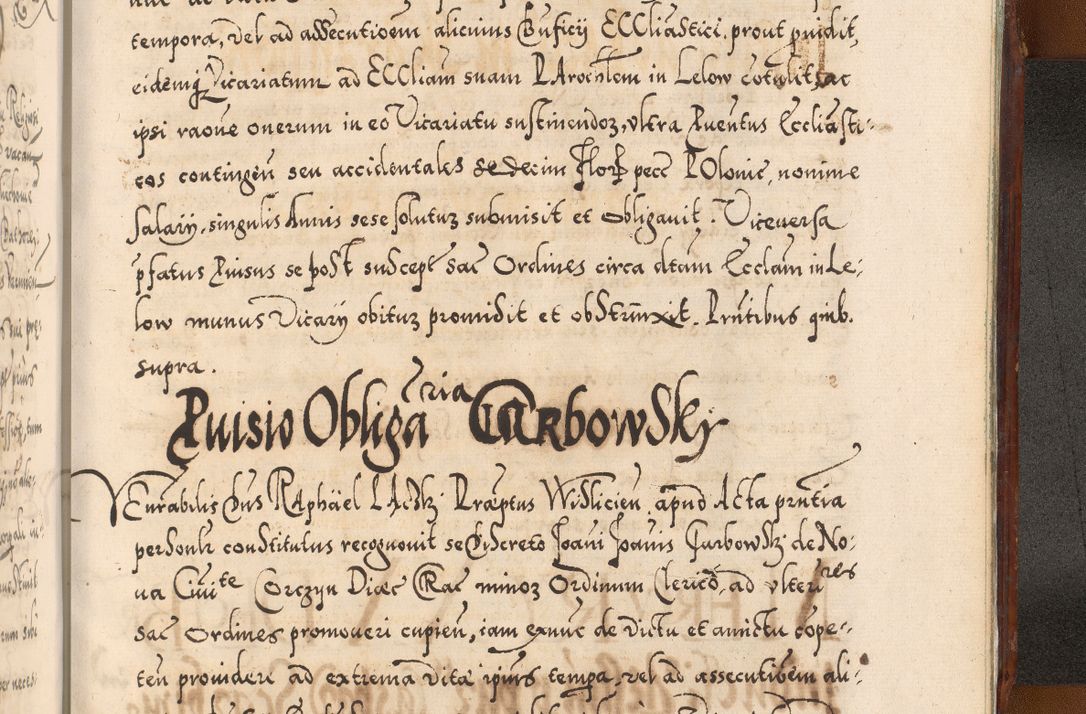 tempora, vel ad assecutioem alicuius Bnficij ECCliastici, prout puidit,
eidemq Vicariatum ad ECCliam suam PArochlem in Lelow cotulit, ac
ipsi raoñe onerum in eo Vicariatu sustinendoz, vltra Puentus Eccliasti-
cos contingeñ seu accidentales sedecim Flor pecc POlonic, nomine
Salarij, singulis Annis sese soluturz submisit et obligauit. Viceuersa
pfatus Puisus se post suscept sac Ordines circa dtam Ecclam in Le-
low munus Vicarij obiturz promisit et obstrinxit. Pntibus quib.
supra.
Puisio Obligaoria Garbowskj
VEnrabilis Dns RAphäel LAckj Præptus Wislicieñ, apud Acta pntia
personlr constitutus recognouit se Discreto Joani Joanis Garbowskj de No-
ua Ciuite Corczyn Diœc CRac minoz Ordinum Clerico, ad vlteriores
sac Ordines promoueri cupieñ, iam exnuc de victu et amictu cope-
teñ prouidere ad extrema vitæ ipius tempa, vel ad assecutioem ali-